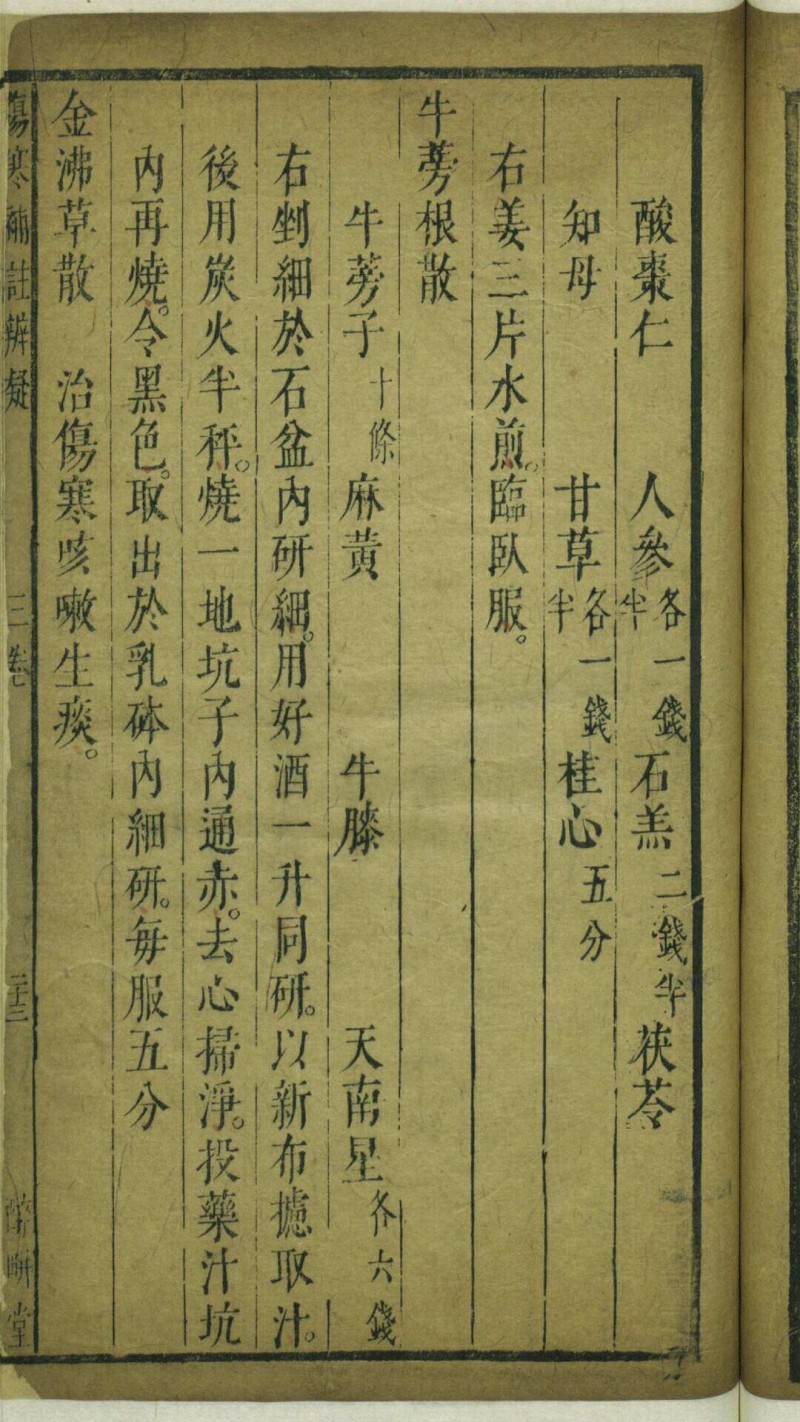 酸棗仁 人參各一錢半 石羔二錢半 茯苓
知母 甘草各一錢半 桂心五分
右姜三片水煎。臨臥服。
牛蒡根散
牛蒡子十條 麻黃 牛膝 天南星各六錢
右剉細於石盆內研細。用好酒一升同研。以新布攄取汁。
後用炭火半秤。燒一地坑子內通赤。去心掃淨。投藥汁坑
內再燒。令黑色。取出於乳砵內細研。每服五分
金沸草散 治傷寒咳嗽生痰。
傷寒補註辨疑 三卷 二十三 堂